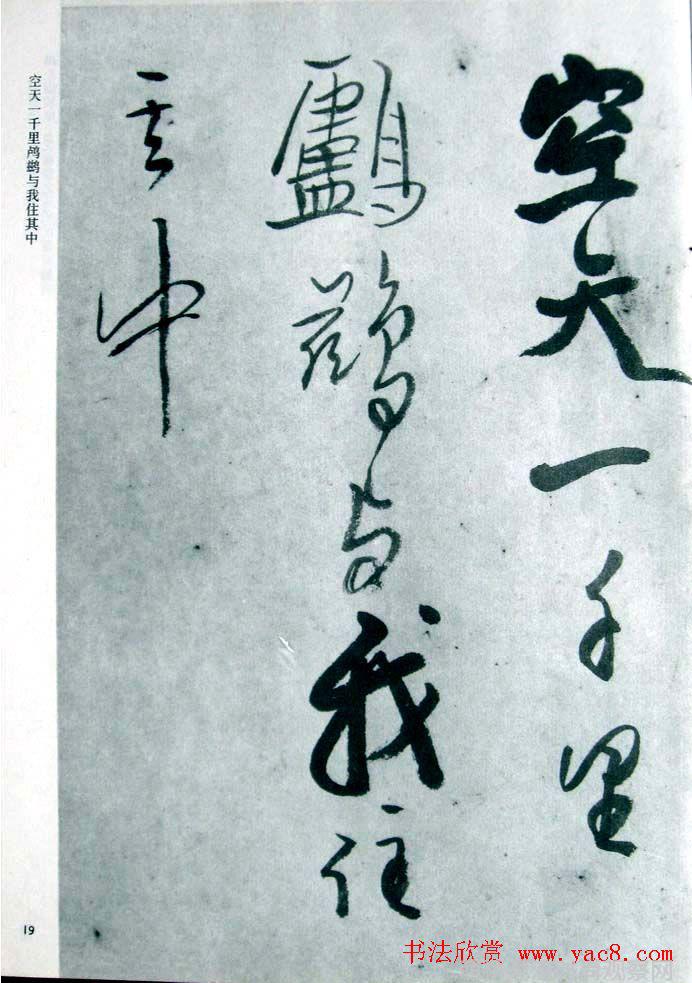 空天一千里
鸕鷀与我住
其中
空天一千里鸬鹚与我住其中
19
书法欣赏 www.yac8.com